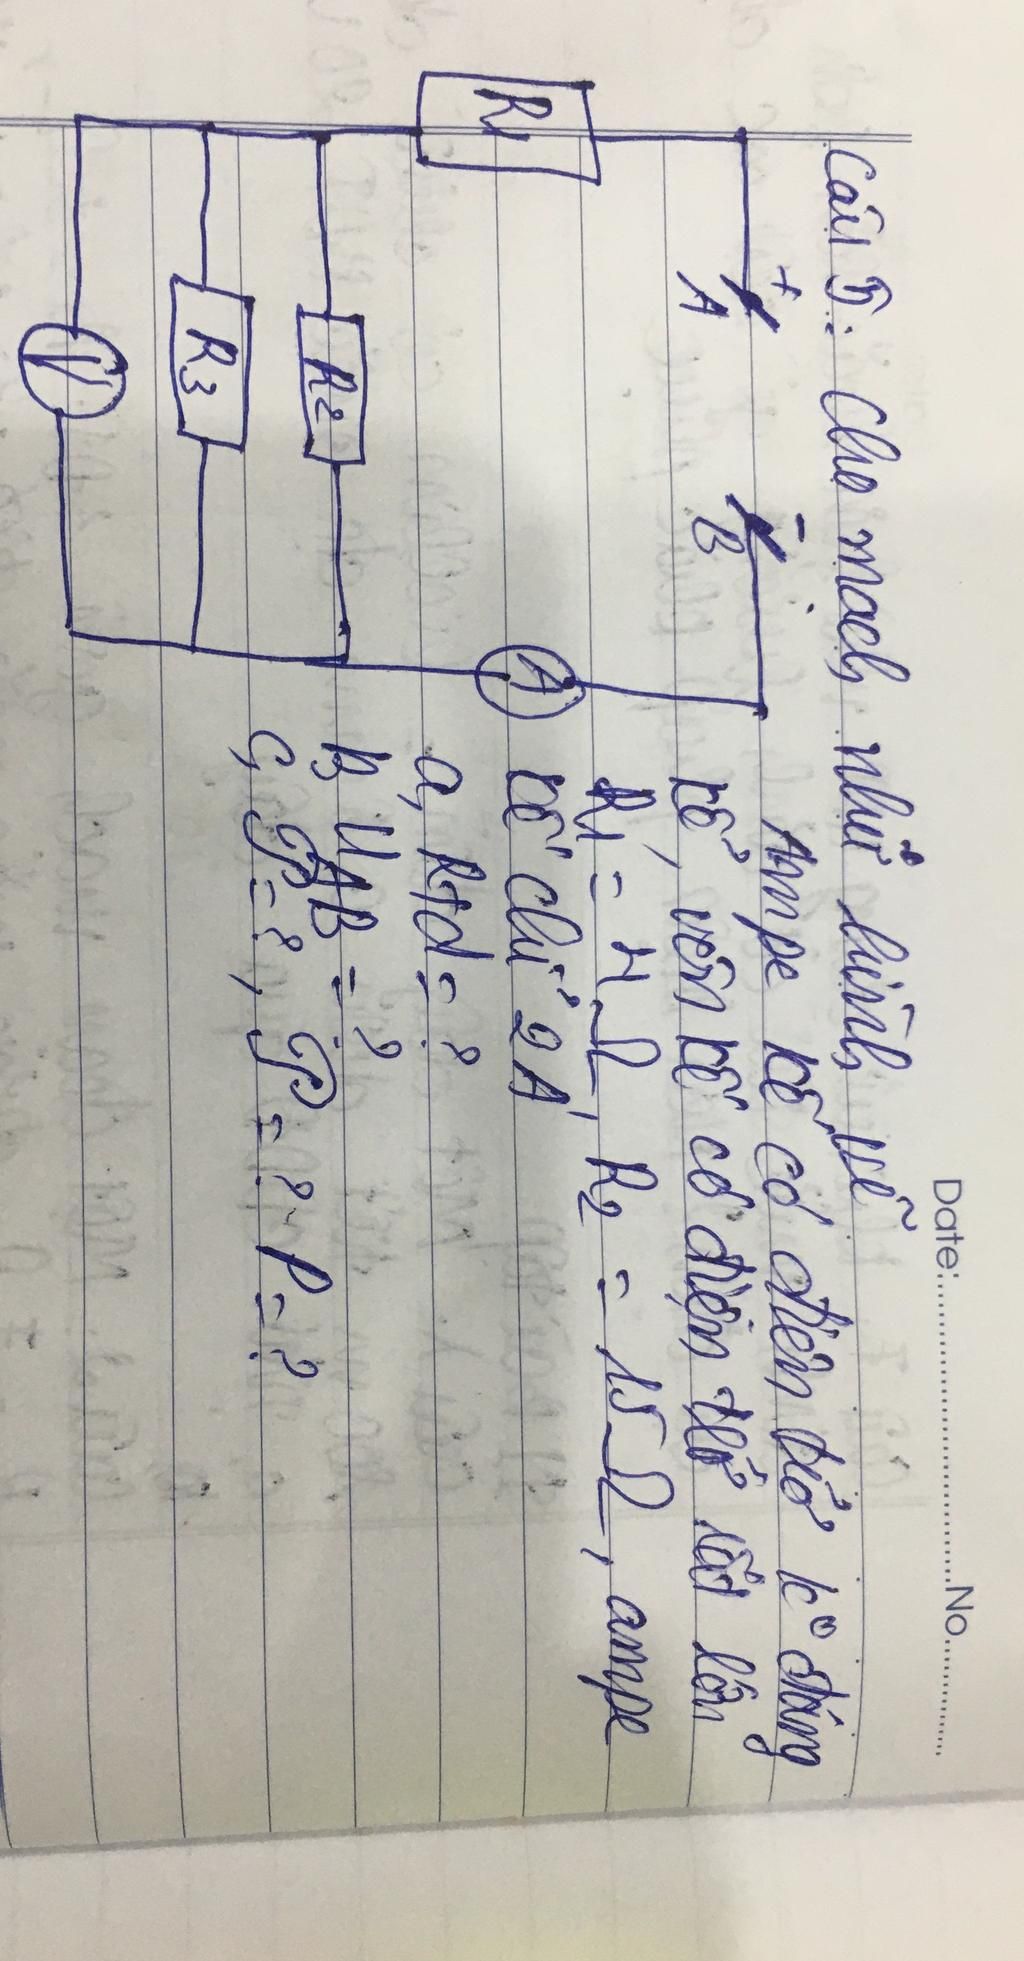 Date: No.
Câu 5: Cho mạch như hình vẽ
Ampe kế có điện trở k° đáng
kể, vôn kế có điện trở rất lớn
R1 = 4Ω, R2 = 15Ω, ampe
kế chỉ 2A
a, Rtđ = ?
b, UAB = ?
c, P = ?, P = ? P = ?
+
A
-
B
R1
A
R2
R3
V